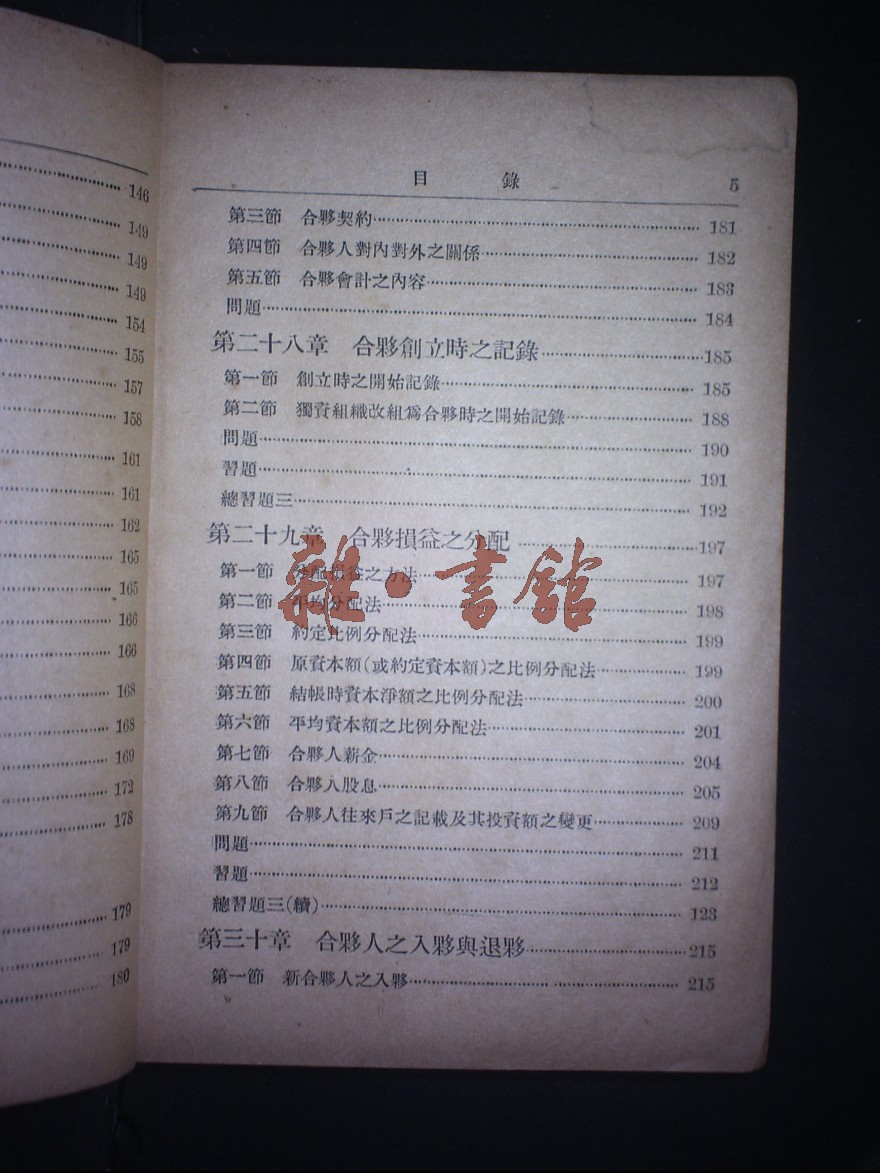 146
149
149
149
154
155
157
158
161
161
162
165
165
166
166
168
168
169
172
178
179
179
180
目 錄 5
第三節 合夥契約 181
第四節 合夥人對內對外之關係 182
第五節 合夥會計之內容 183
問題 184
第二十八章 合夥創立時之記錄 185
第一節 創立時之開始記錄 185
第二節 獨資組織改組爲合夥時之開始記錄 188
問題 190
習題 191
總習題三 192
第二十九章 合夥損益之分配 197
第一節 分配損益之方法 197
第二節 平均分配法 198
第三節 約定比例分配法 199
第四節 原資本額(或約定資本額)之比例分配法 199
第五節 結帳時資本淨額之比例分配法 200
第六節 平均資本額之比例分配法 201
第七節 合夥人薪金 204
第八節 合夥人股息 205
第九節 合夥人往來戶之記載及其投資額之變更 209
問題 211
習題 212
總習題三(續) 123
第三十章 合夥人之入夥與退夥 215
第一節 新合夥人之入夥 215
雜·書館